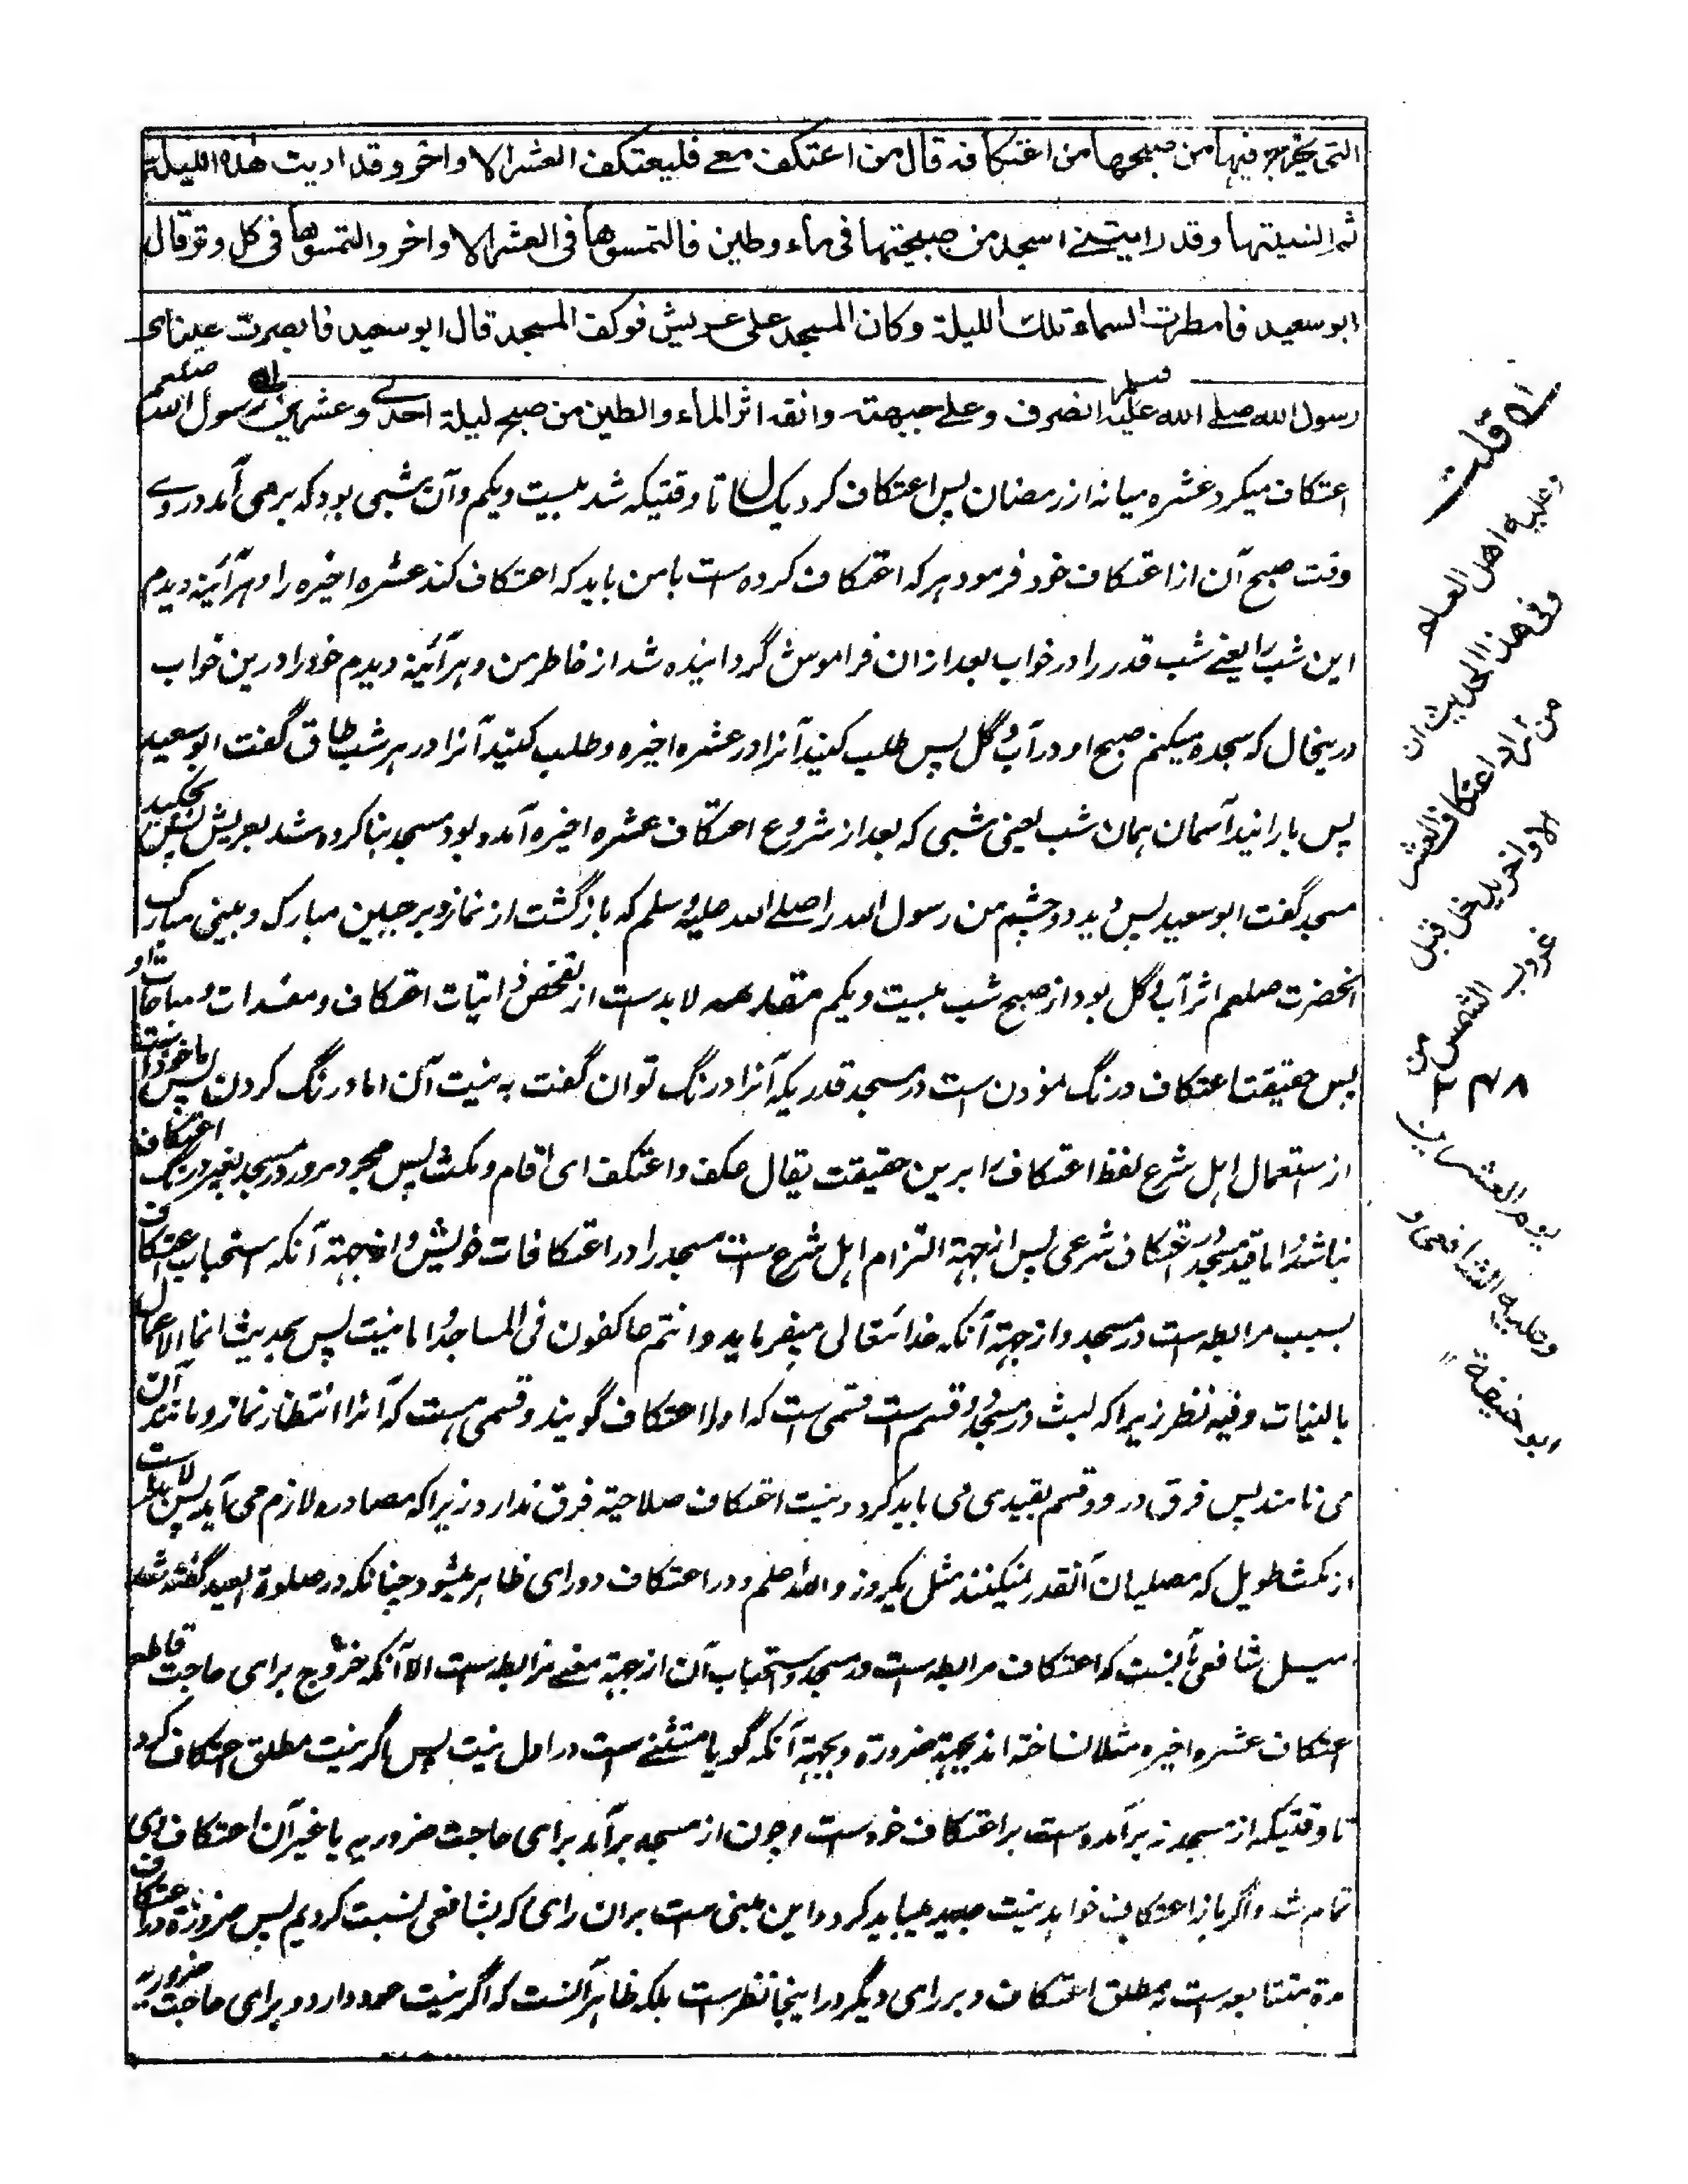 التی یخرج فیها من صبحها من اعتکافه قال من اعتکف معے فلیعتکف العشر الاواخر وقد اریت هذه اللیلة
ثم انسیتها وقد رایتنے اسجد من صبیحتها فی ماء وطین فالتمسوها فی العشر الاواخر والتمسوها فی کل وتر قال
ابو سعید فامطرت السماء تلک اللیلة وکان المسجد علی عریش فوکف المسجد قال ابو سعید فابصرت عینای
رسول الله صلے الله علیه وسلم انصرف وعلے جبهته وانفه اثر الماء والطین من صبح لیلة احدے وعشرین رسول الله صلعم
اعتکاف میکرد عشره میانه از رمضان پس اعتکاف کرد یک سال تا وقتیکه شد بست ویکم وآن شبی بود که برمی آمد دروے
وقت صبح آن از اعتکاف خود فرمود هر که اعتکاف کرده است با من باید که اعتکاف کند عشره اخیره را وهر آئینه دیدم
این شب را یعنے شب قدر را در خواب بعد ازان فراموش گردانیده شد از خاطر من وهر آئینه دیدم خود را درین خواب
درینحال که سجده میکنم صبح او در آب وگل پس طلب کنید آنرا در عشره اخیره وطلب کنید آنرا در هر شب طاق گفت ابو سعید
پس بارانید آسمان همان شب یعنی شبی که بعد از شروع اعتکاف عشره اخیره آمده بود ومسجد بنا کرده شد بعریش پس بچکید
مسجد گفت ابو سعید پس دید دو چشم من رسول الله را صلے الله علیه وسلم که بازگشت از نماز وبر جبین مبارک وبینی مبارک
آنحضرت صلعم اثر آب وگل بود از صبح شب بست ویکم مقدمه لابدست از تفحص ذاتیات اعتکاف ومفسدات ومباحات او
پس حقیقت اعتکاف درنگ نمودن است در مسجد قدریکه آنرا درنگ توان گفت به نیت آن اما درنگ کردن پس ماخوذ است
از استعمال اهل شرع لفظ اعتکاف را برین حقیقت یقال عکف واعتکف ای اقام ومکث پس مجرد مرور در مسجد بغیر درنگ اعتکاف
نباشد واما قید مسجد در اعتکاف شرعی پس از جهة التزام اهل شرع ست مسجد را در اعتکافات خویش واز جهة آنکه استحباب اعتکاف
بسبب مرابطه ست در مسجد واز جهة آنکه خدائتعالی میفرماید وانتم عاکفون فی المساجد واما نیت پس بحدیث انما الاعمال
بالنیات وفیه نظر زیراکه لبث در مسجد دو قسم ست قسمی ست که او را اعتکاف گویند وقسمی ست که آنرا انتظار نماز ومانند آن
می نامند پس فرق در دو قسم بقیدی می باید کرد ونیت اعتکاف صلاحیة فرق ندارد زیراکه مصادره لازم می آید پس لابد ست
از مکث طویل که مصلیان آنقدر نمیکنند مثل یکروز والله اعلم ودر اعتکاف دو رای ظاهر میشود چنانکه در صلوة العید گفته شد
میل شافعی آنست که اعتکاف مرابطه ست در مسجد واستحباب آن از جهة معنے مرابطه ست الا آنکه خروج برای حاجت قاطع
اعتکاف عشره اخیره مثلا نساخته اند بجهة ضرورة وبجهة آنکه گویا مستثنے ست در اصل نیت پس اگر نیت مطلق اعتکاف کرد
تا وقتیکه از مسجد نه برآمده ست بر اعتکاف خود ست وچون از مسجد برآمد برای حاجت ضروریه یا غیر آن اعتکاف وی
تمام شد واگر باز اعتکاف خواهد نیت جدید میباید کرد واین مبنی ست بران رای که بشافعی نسبت کردیم پس ضرورة در اعتکاف
مدة متتابعه ست نه مطلق اعتکاف وبر رای دیگر در اینجا نظرست بلکه ظاهر آنست که اگر نیت عود دارد وبرای حاجت ضروریه
قلت
وعلیه اهل العلم
وفی هذا الحدیث ان
من اراد اعتکاف العشر
الاواخر یدخل قبل
غروب الشمس من
یوم العشرین
وعلیه الشافعی و
ابو حنیفة ۱۲